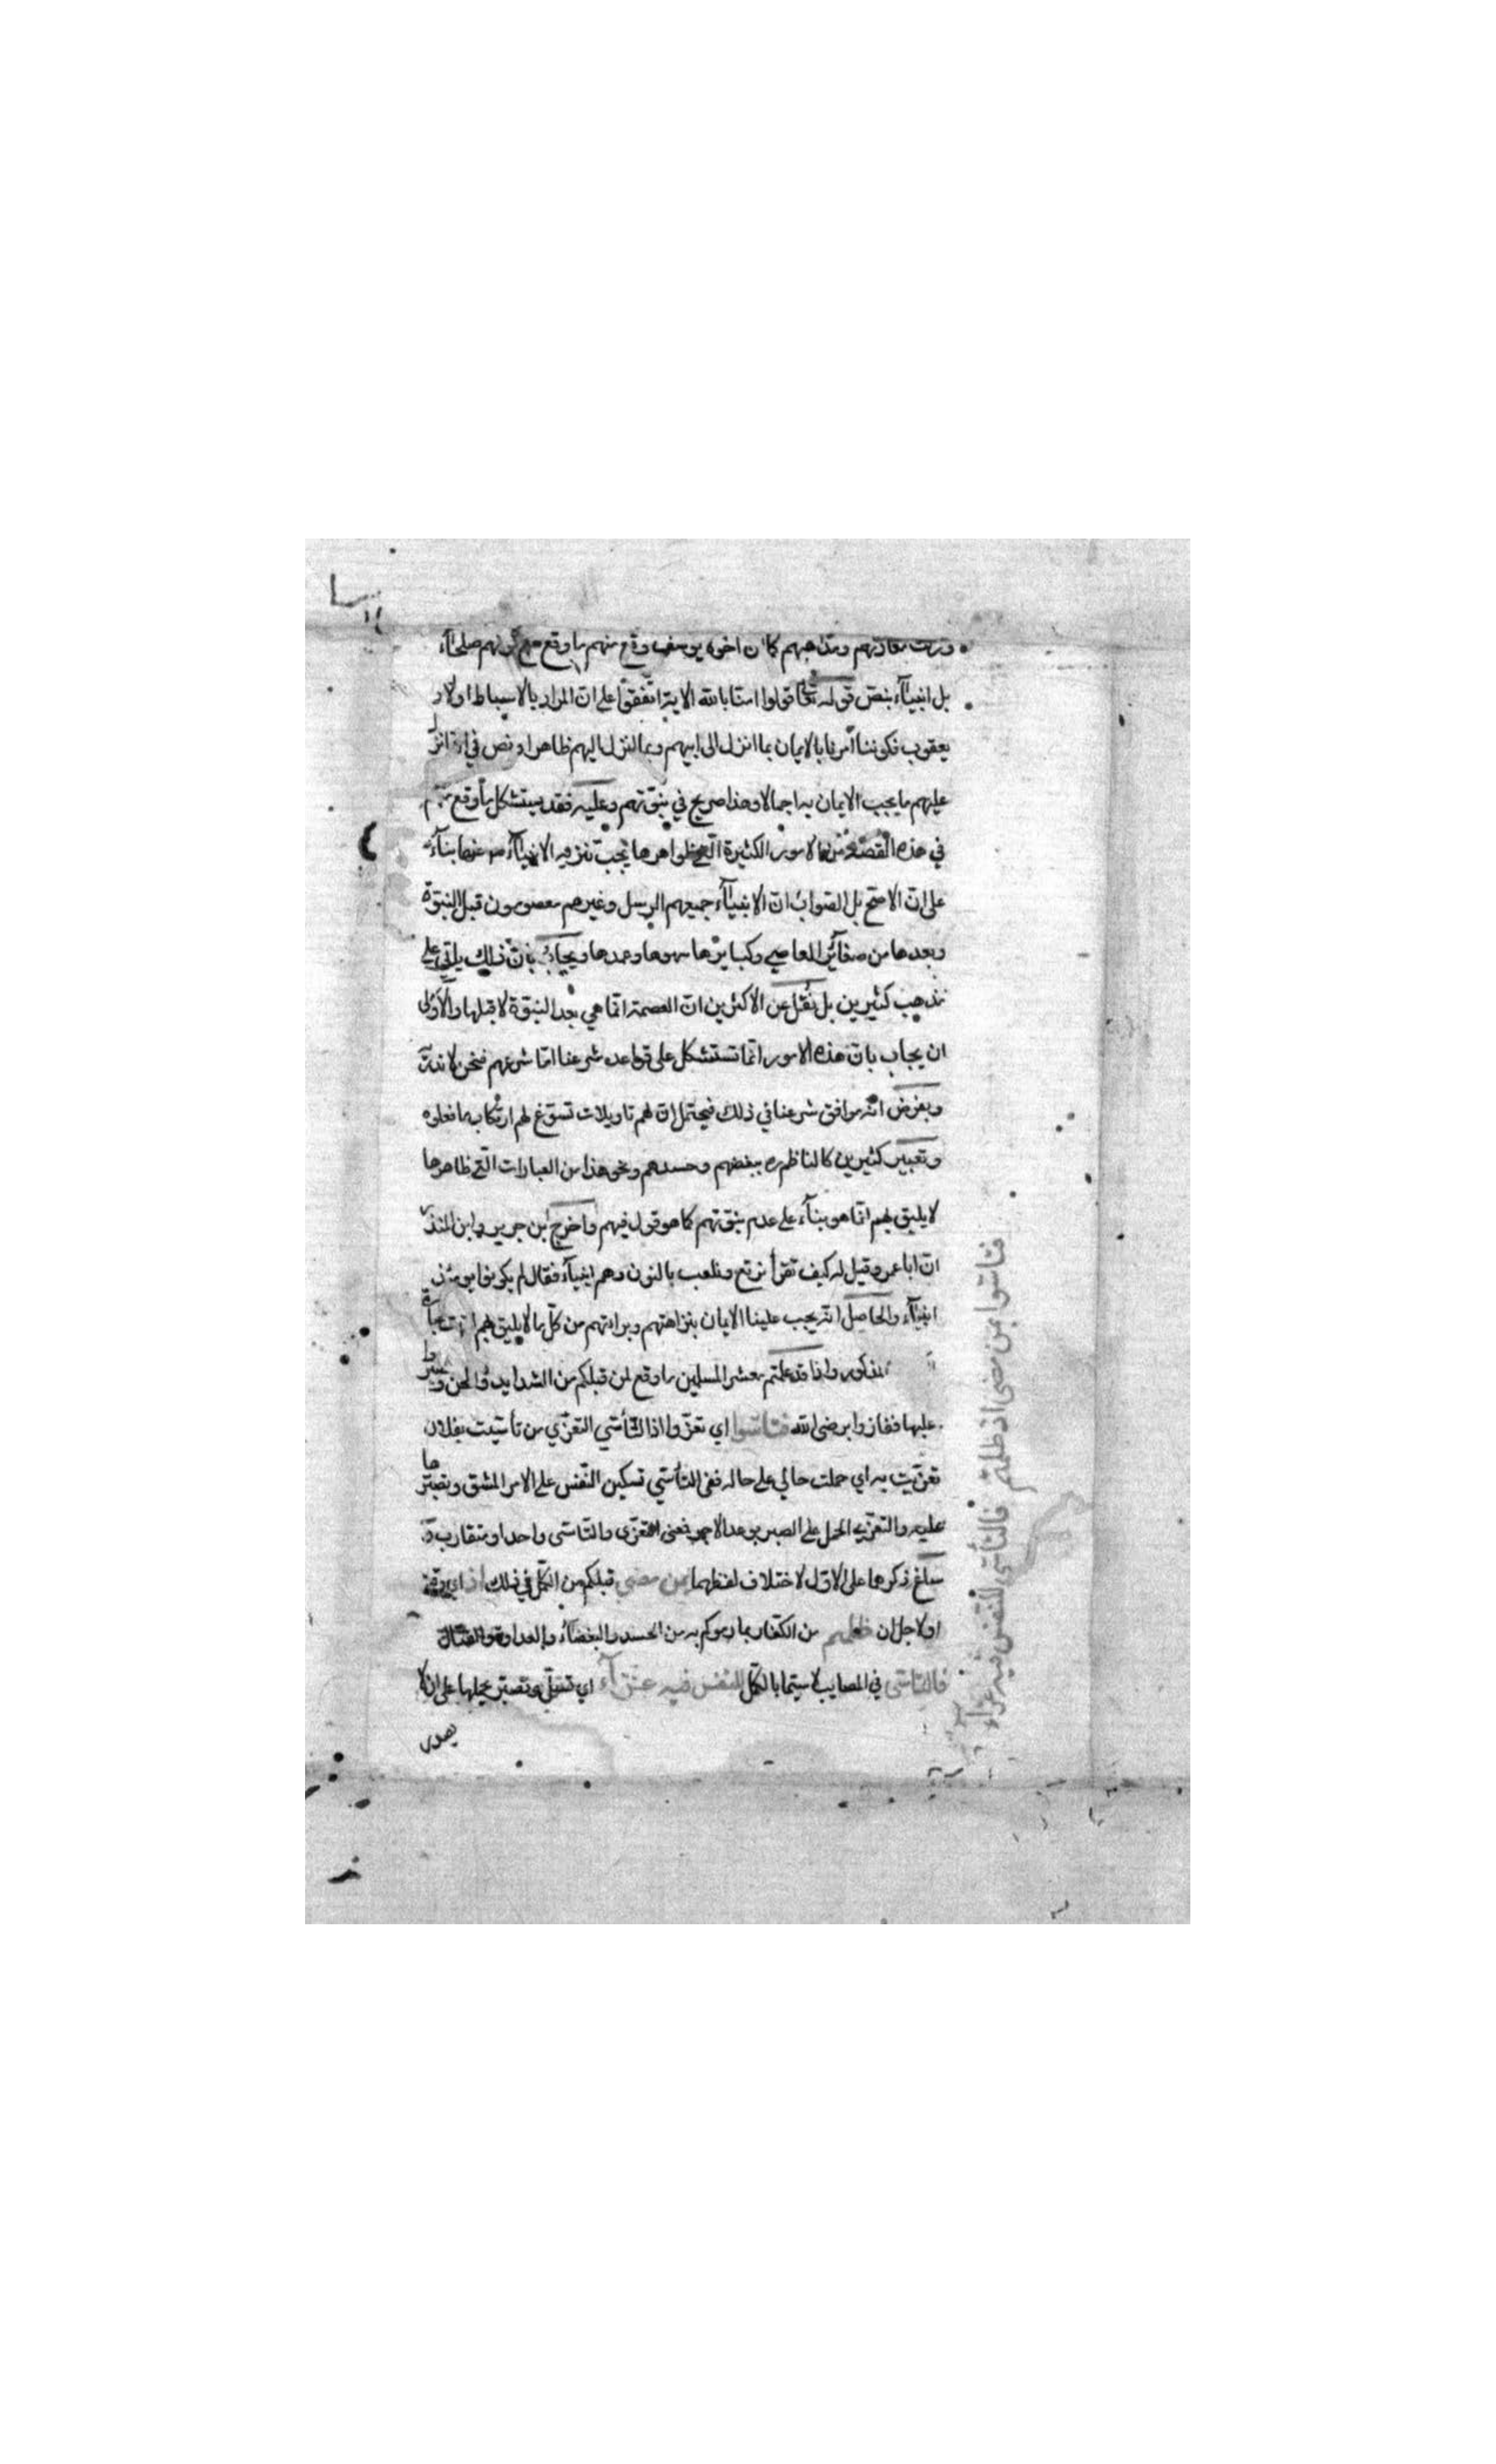 ومذاهبهم كما ان اخوة يوسف وقع منهم ما وقع مع كونهم صلحآء
بل انبيآء بنصّ قوله تعالى قولوا امنّا بالله الاية اتّفقوا على انّ المراد بالاسباط اولاد
يعقوب فكوننا أمرنا بالايمان بما انزل الى ابيهم وبما انزل اليهم ظاهر او نص في انزل
عليهم ما يجب الايمان به اجمالا وهذا صريح في نبوّتهم وعليه فقد يستشكل ما وقع
في هذه القصّة من الامور الكثيرة الّتي ظواهرها يجب تنزيه الانبيآء عنها بنآء
على انّ الاصح بل الصّواب انّ الانبيآء جميعهم الرسل وغيرهم معصومون قبل النبوّة
وبعدها من صغآئر المعاصي وكبايرها سهوها وعمدها ويجاب بانّ ذلك ياتي على
مذهب كثيرين بل نقل عن الاكثرين انّ العصمة انّما هي بعد النبوّة لا قبلها والاولى
ان يجاب بانّ هذه الامور انّما تستشكل على قواعد شرعنا امّا شرعهم فنحن لا ندرى
وبفرض انّه موافق شرعنا في ذلك فيحتمل انّ لهم تاويلات تسوّغ لهم ارتكاب ما فعلوه
وتعبير كثيرين كالناظم ببغضهم وحسدهم ونحو هذا من العبارات الّتي ظاهرها
لا يليق بهم انّما هو بنآء على عدم نبوّتهم كما هو قول فيهم واخرج ابن جرير وابن المنذر
انّ ابا عمرو قيل له كيف تقرأ نرتع ونلعب بالنون وهم انبيآء فقال لم يكونوا يومئذ
انبيآء والحاصل انّه يجب علينا الايمان بنزاهتهم وبراءتهم من كلّ ما لا يليق بهم
المذكور واذا قد علمتم معشر المسلمين ما وقع لمن قبلكم من الشدايد والمحن وصبروا
عليها ففازوا برضى الله فتاسّوا اي تعزّوا اذ التّأسّي التعزّي من تأسّيت بفلان
تعزّيت به اي حملت حالي على حاله ففي التأسّي تسكين النّفس على الامر المشق وتصبّرها
عليه والتعزّي الحمل على الصبر بوعد الاجر فمعنى التعزّى والتاسّى واحد او متقارب
سبلغ ذكرها على الاوّل لاختلاف لفظهما بمن مضى قبلكم من الكمّل في ذلك اذ اي وقت
او لاجل ان ظلمتم من الكفّار بما رموكم به من الحسد والبغضآء والعداوة والقتال
فالتّاسّى في المصايب لا سيّما بالكمّل للنّفس فيه عزآء اي تسلّ وتصبّر يحملها على ان لا
يصدر
فتاسّوا بمن مضى اذ ظلمتم فالتّأسّي للنّفس فيه عزآء